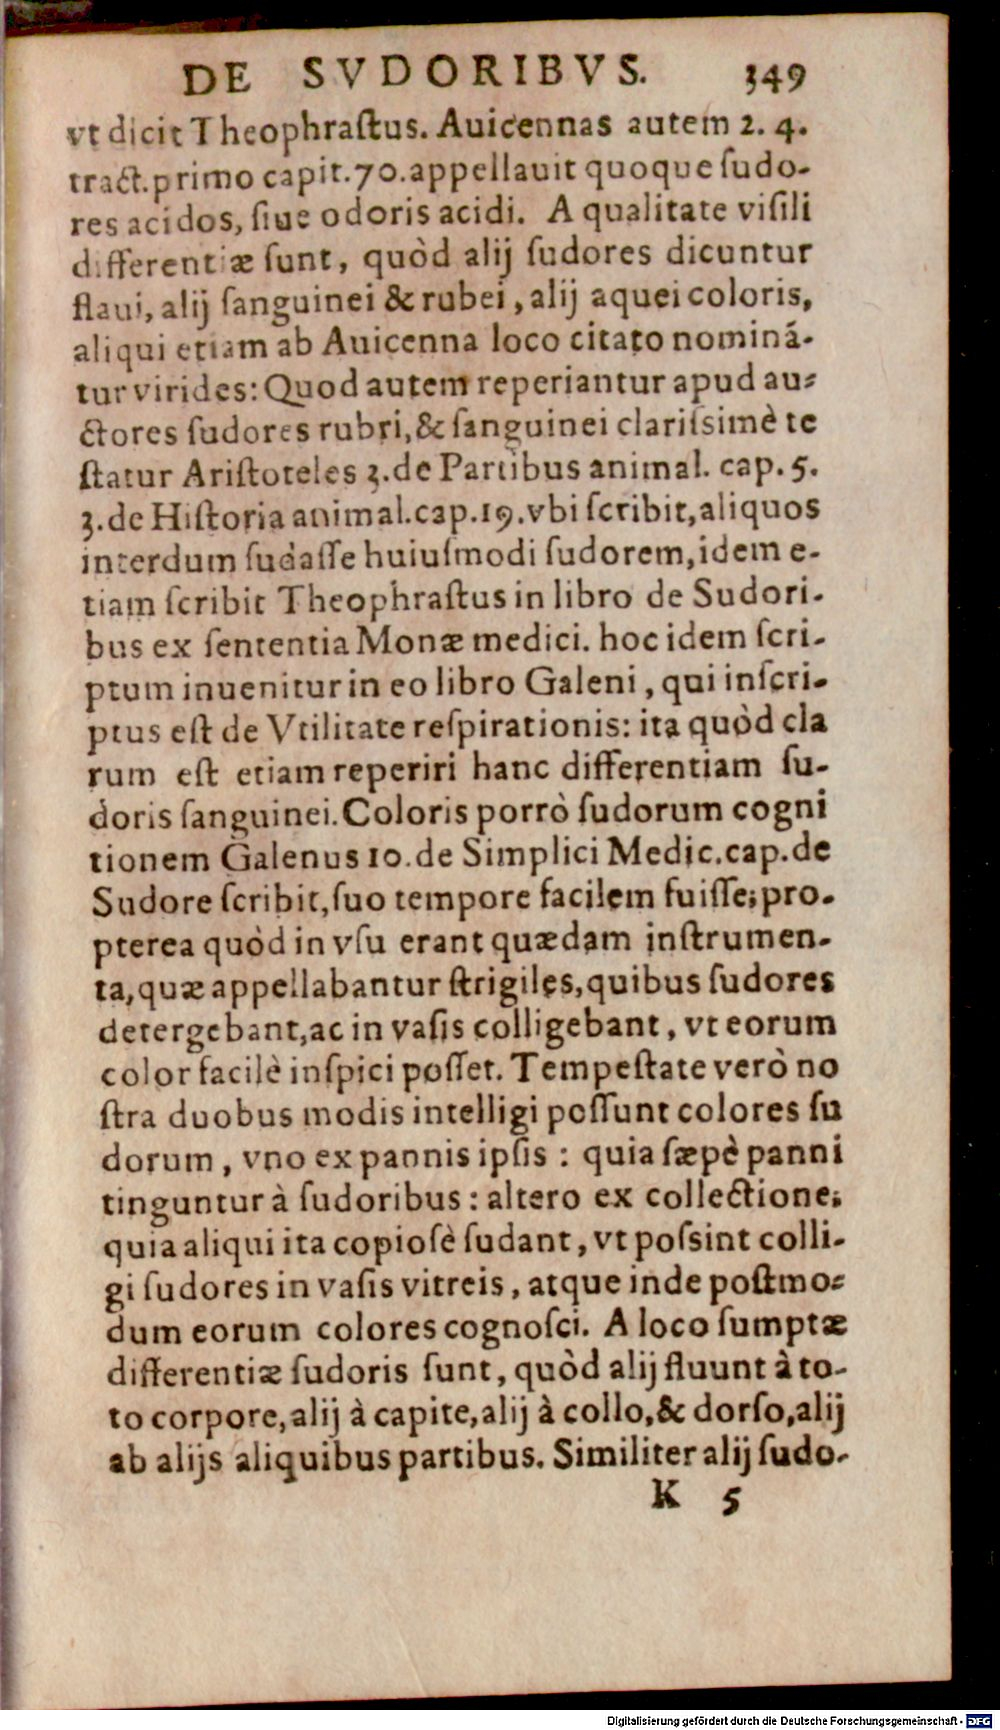 DE SVDORIBVS. 349
vt dicit Theophraſtus. Auicennas autem 2. 4.
tract.primo capit.70.appellauit quoque ſudo-
res acidos, ſiue odoris acidi. A qualitate viſili
differentiæ ſunt, quòd alij ſudores dicuntur
flaui, alij ſanguinei & rubei, alij aquei coloris,
aliqui etiam ab Auicenna loco citato nominá-
tur virides: Quod autem reperiantur apud au-
ctores ſudores rubri,& ſanguinei clariſsimè te
ſtatur Ariſtoteles 3.de Partibus animal. cap. 5.
3.de Hiſtoria animal.cap.19.vbi ſcribit,aliquos
interdum ſudaſſe huiuſmodi ſudorem,idem e-
tiam ſcribit Theophraſtus in libro de Sudori-
bus ex ſententia Monæ medici. hoc idem ſcri-
ptum inuenitur in eo libro Galeni, qui inſcri-
ptus eſt de Vtilitate reſpirationis: ita quòd cla
rum eſt etiam reperiri hanc differentiam ſu-
doris ſanguinei. Coloris porrò ſudorum cogni
tionem Galenus 10.de Simplici Medic.cap.de
Sudore ſcribit,ſuo tempore facilem fuiſſe; pro-
pterea quòd in vſu erant quædam inſtrumen-
ta,quæ appellabantur ſtrigiles,quibus ſudores
detergebant,ac in vaſis colligebant, vt eorum
color facilè inſpici poſſet. Tempeſtate verò no
ſtra duobus modis intelligi poſſunt colores ſu
dorum, vno ex pannis ipſis : quia ſæpè panni
tinguntur à ſudoribus : altero ex collectione;
quia aliqui ita copioſè ſudant, vt poſsint colli-
gi ſudores in vaſis vitreis, atque inde poſtmo-
dum eorum colores cognoſci. A loco ſumptæ
differentiæ ſudoris ſunt, quòd alij fluunt à to-
to corpore,alij à capite,alij à collo,& dorſo,alij
ab alijs aliquibus partibus. Similiter alij ſudo-
K 5
Digitalisierung gefördert durch die Deutsche Forschungsgemeinschaft - DFG